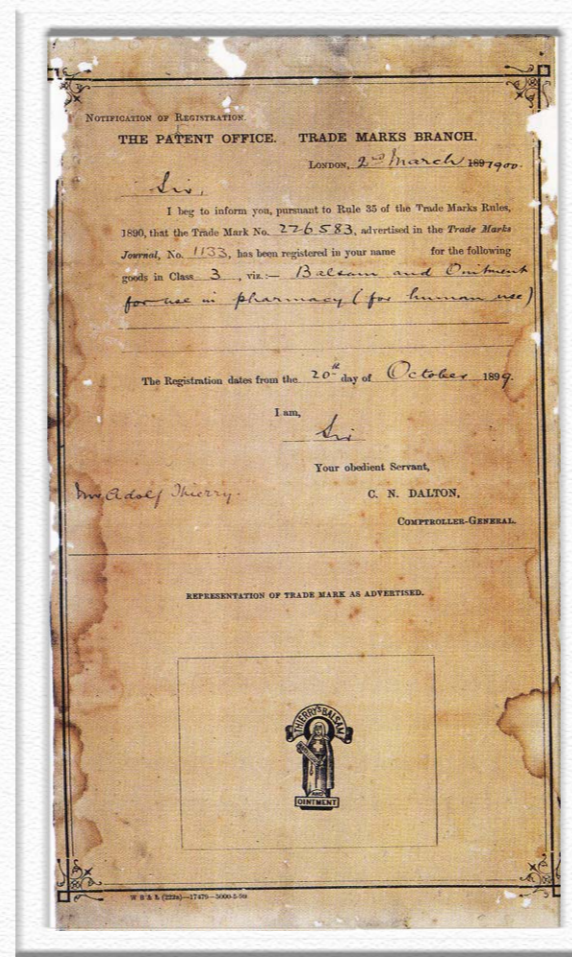 NOTIFICATION OF REGISTRATION.
THE PATENT OFFICE. TRADE MARKS BRANCH.
LONDON, 2nd March 1897 1900.
Sir,
I beg to inform you, pursuant to Rule 35 of the Trade Marks Rules,
1890, that the Trade Mark No. 226583, advertised in the Trade Marks
Journal, No. 1133, has been registered in your name for the following
goods in Class 3, viz:— Balsam and Ointment
for use in pharmacy (for human use)
The Registration dates from the 20th day of October 1899.
I am,
Sir
Your obedient Servant,
Mr Adolf Thierry.
C. N. DALTON,
COMPTROLLER-GENERAL.
REPRESENTATION OF TRADE MARK AS ADVERTISED.
THIERRY'S BALSAM
AND
OINTMENT
W B & L (222a)—17479—5000-5-99